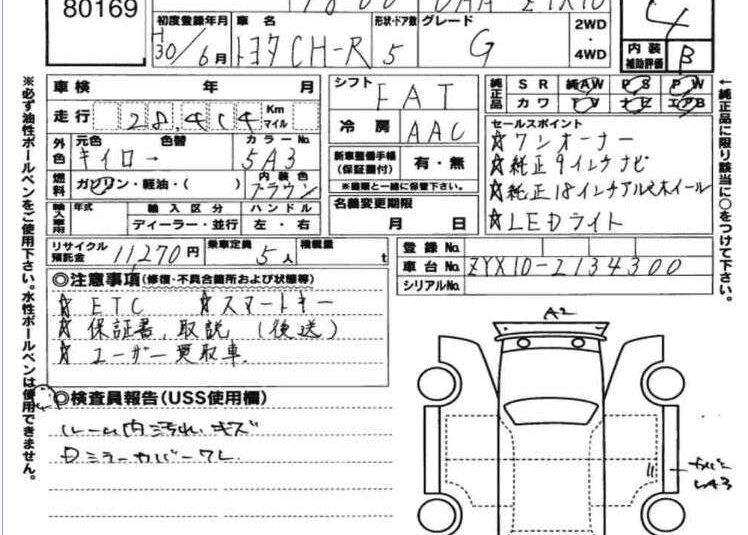 80169
1800 DAA ZYX10
初度登録年月 車名 形状・ドア数 グレード 2WD・4WD
H30/6月 トヨタCH-R 5 G
4
内装補助評価 B
※必ず油性ボールペンをご使用下さい。水性ボールペンは使用できません。
車検 年 月
走行 28,414 Km マイル
外色 元色 色替 カラーNo.
キイロー 5A3
燃料 ガソリン・軽油・( ) 内装色 ブラウン
輸入車用 年式 輸入区分 ハンドル
ディーラー・並行 左・右
シフト FAT
冷房 AAC
新車整備手帳(保証書付) 有・無
※書類と一緒に保管下さい。
名義変更期限
月 日
純正品 SR 純AW PS PW
カワ TV ナビ エアB
セールスポイント
☆ワンオーナー
☆純正9インチナビ
☆純正18インチアルミホイール
☆LEDライト
←純正品に限り該当に○をつけて下さい。
リサイクル預託金 11270円 乗車定員 5人 積載量 t
登録No.
車台No. ZYX10-2134300
シリアルNo.
◎注意事項(修復・不具合箇所および状態等)
☆ETC ☆スマートキー
☆保証書、取説(後送)
☆ユーザー買取車
◎検査員報告(USS使用欄)
ルーム内汚れ キズ
Dミラーカバーワレ
A2